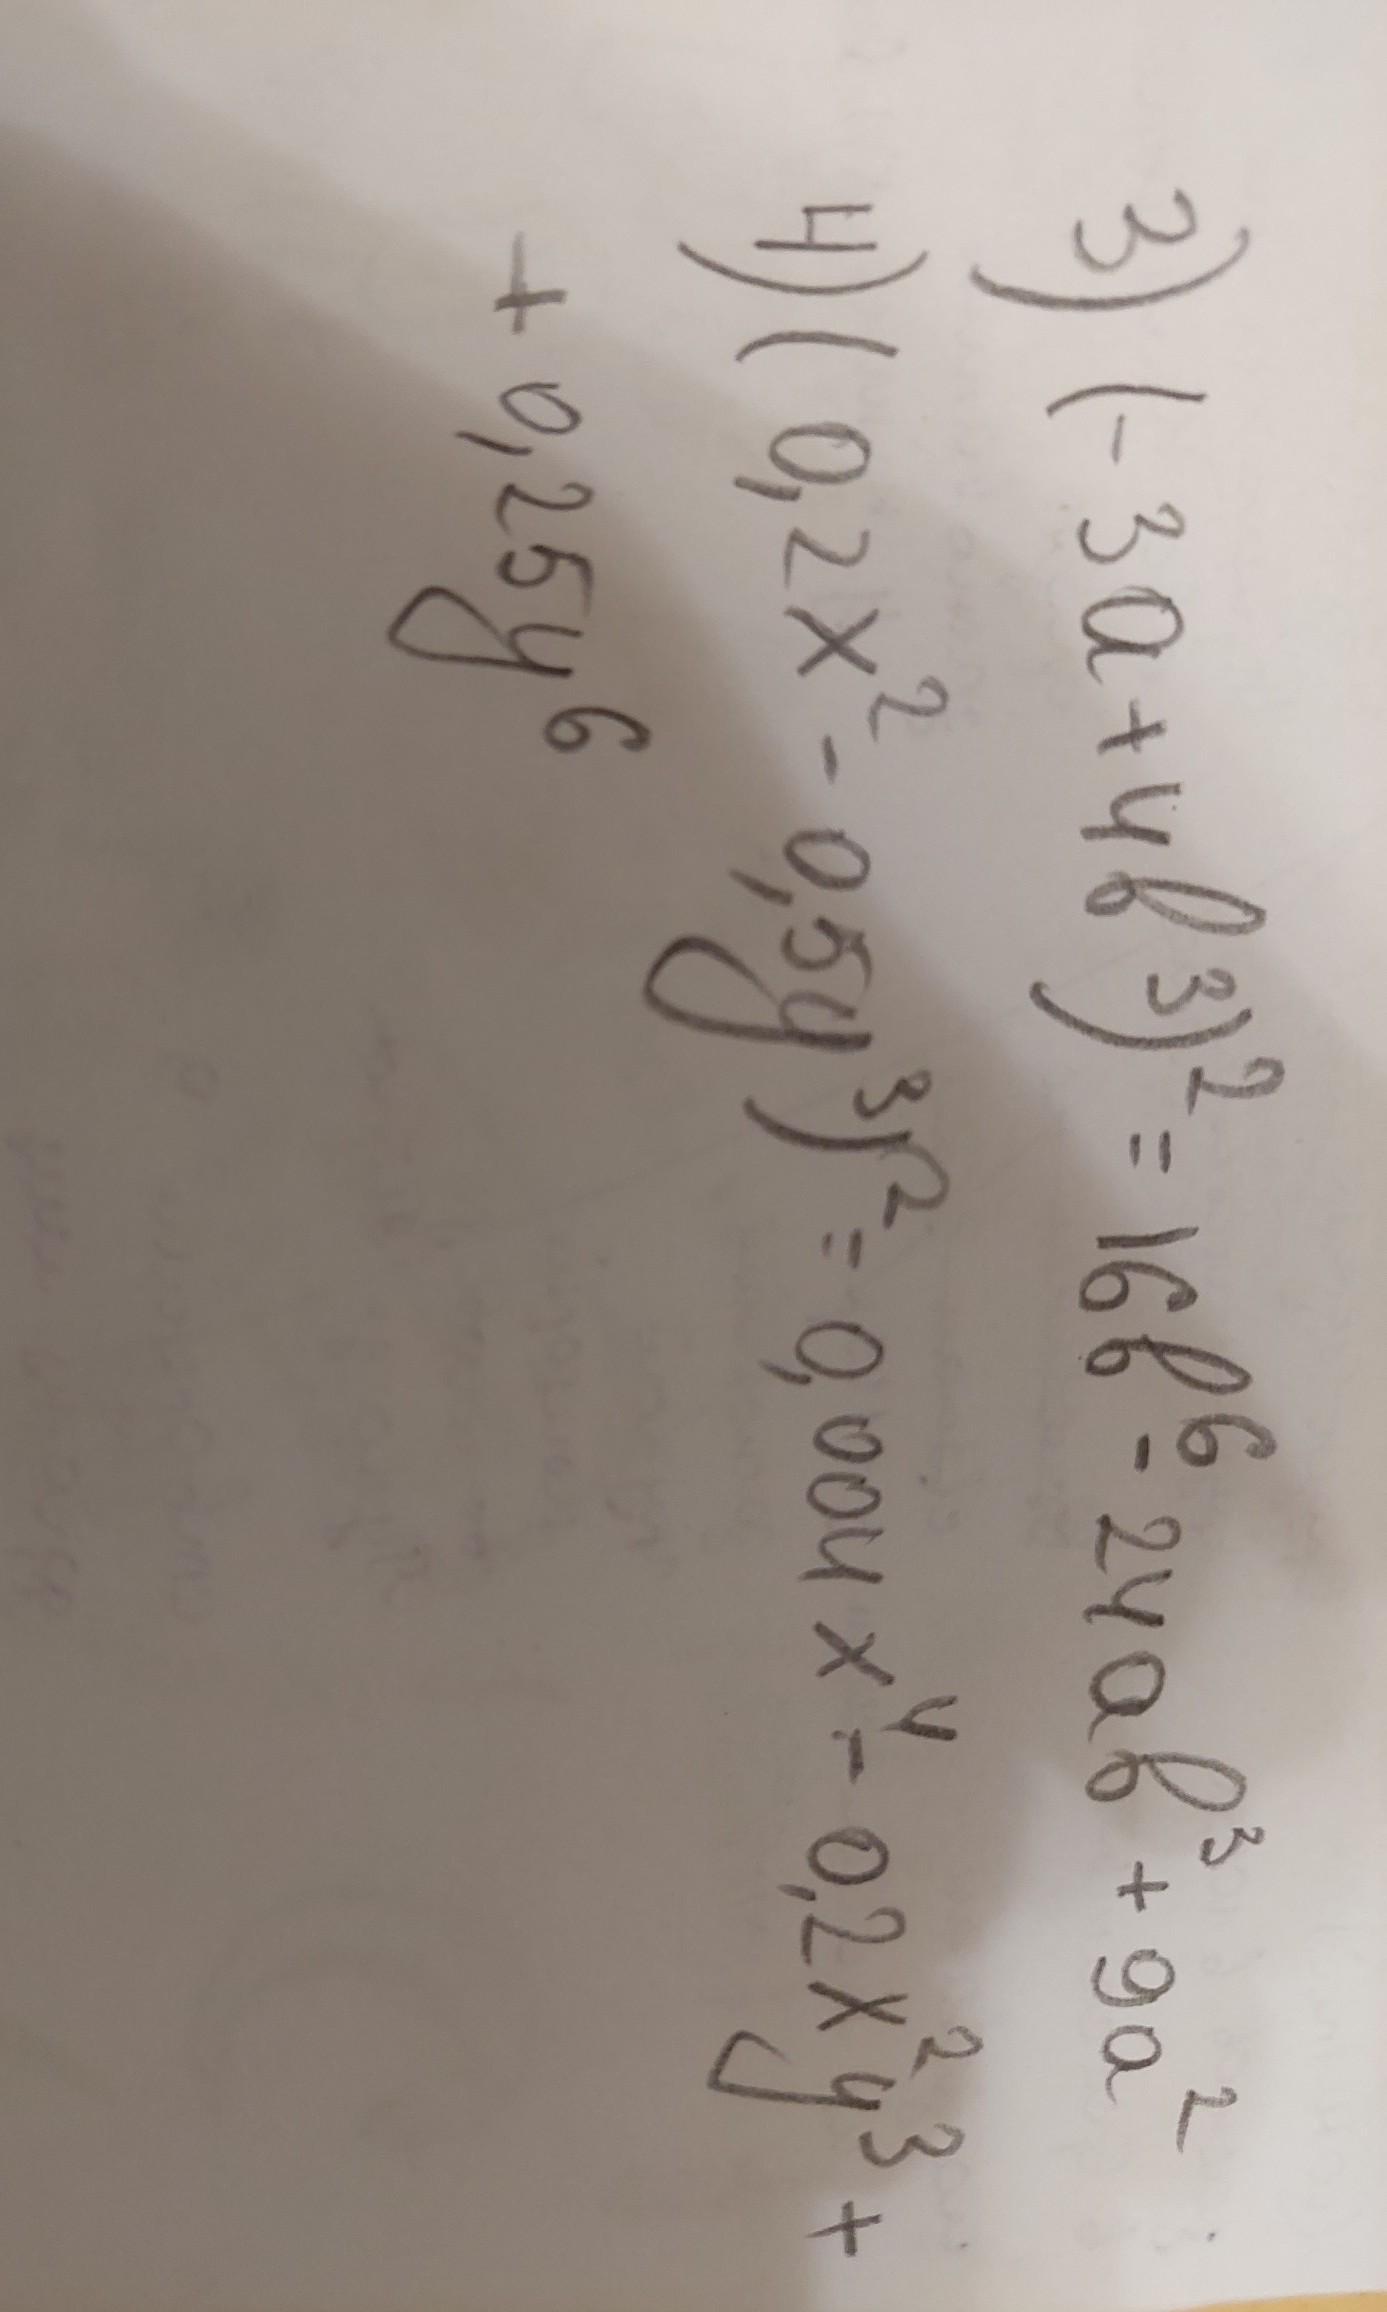 3) (-3a+4b³)² = 16b⁶ - 24ab³ + 9a²
4) (0,2x² - 0,5y³)² = 0,004x⁴ - 0,2x²y³ +
+ 0,25y⁶